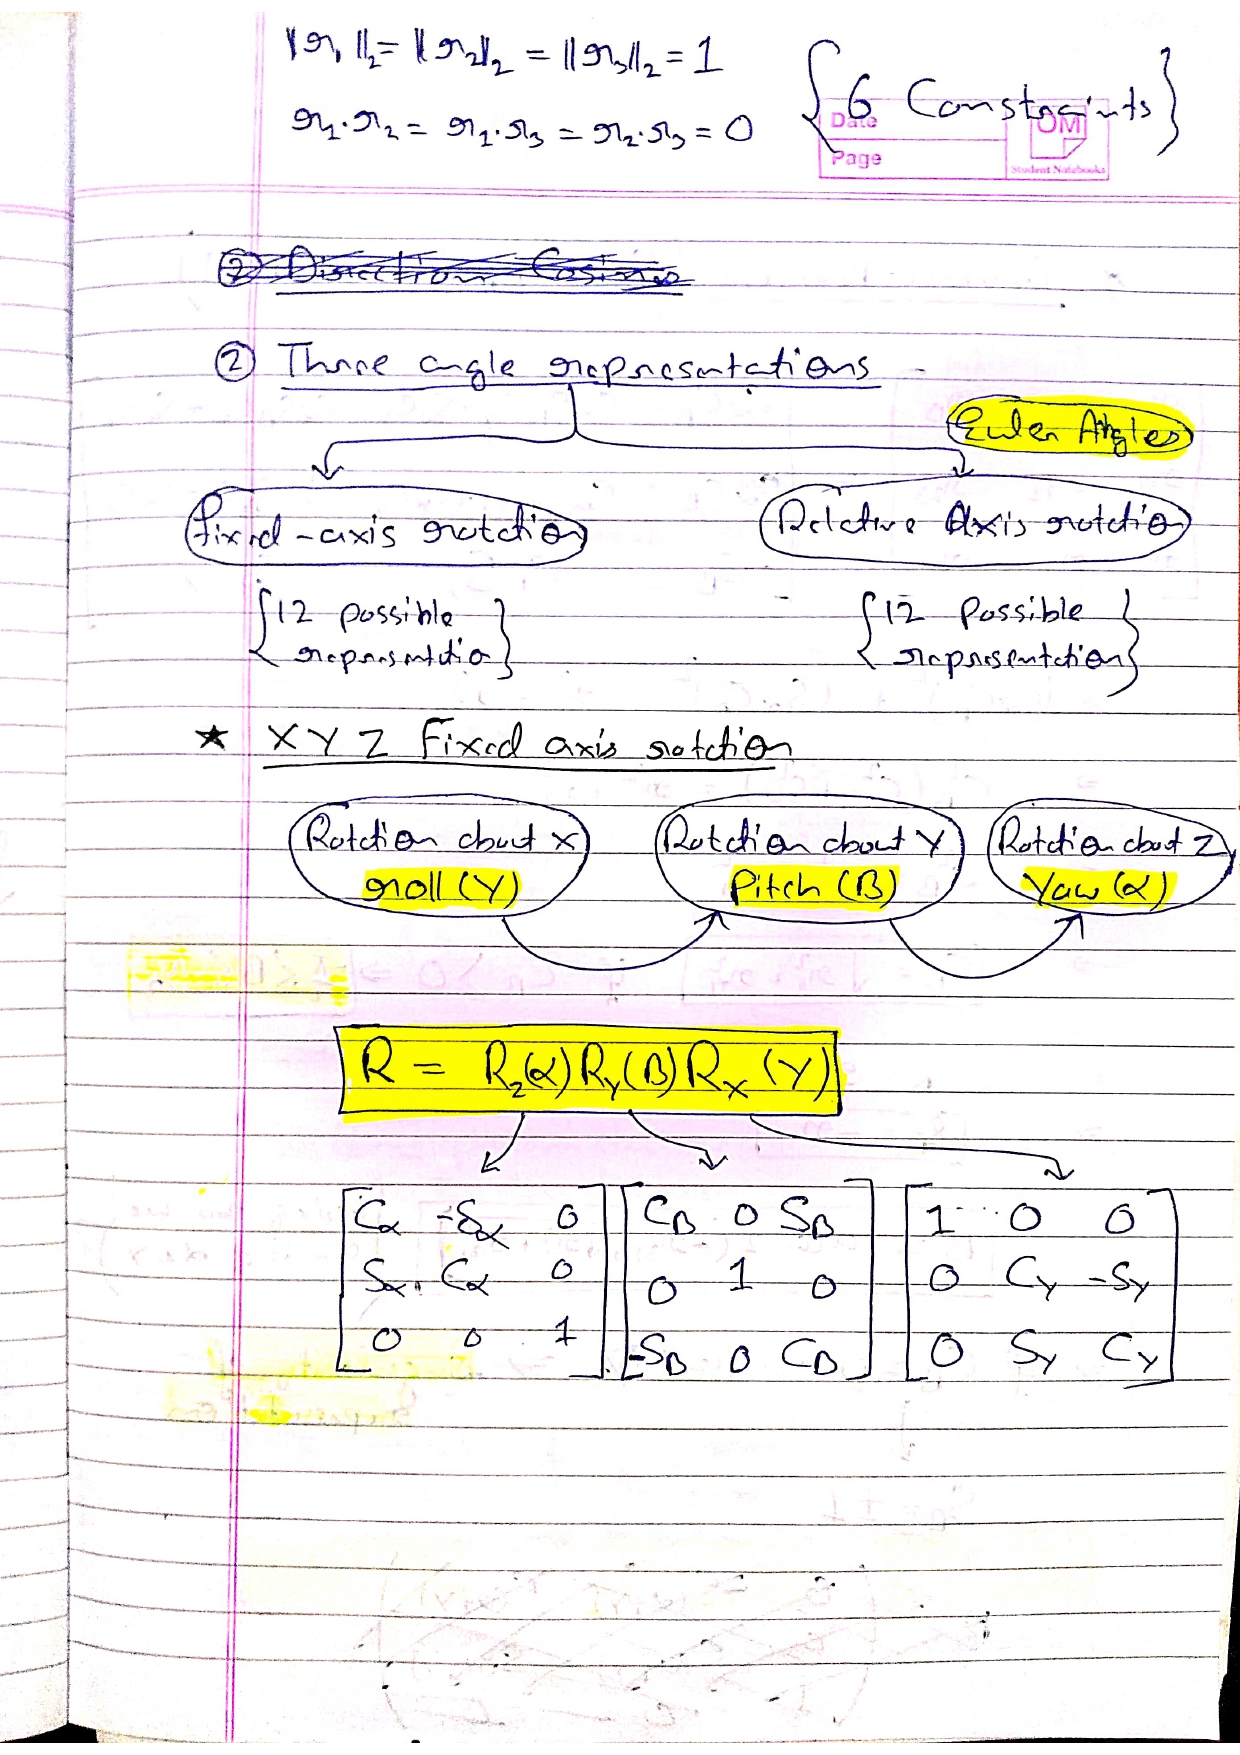 ||r₁||₂ = ||r₂||₂ = ||r₃||₂ = 1
r₁·r₂ = r₁·r₃ = r₂·r₃ = 0
{6 Constraints}
Date
Page
OM
Student Notebooks
② Direction Cosines
② Three angle representations
Euler Angles
Fixed-axis rotation
Relative Axis rotation
{12 possible representation}
{12 Possible representation}
★ X Y Z Fixed axis rotation
Rotation about X
roll (γ)
Rotation about Y
Pitch (β)
Rotation about Z
Yaw (α)
R = R_z(α) R_y(β) R_x(γ)
[Cα -Sα 0] [Cβ 0 Sβ] [1 0 0]
[Sα Cα 0] [0 1 0] [0 Cγ -Sγ]
[0 0 1] [-Sβ 0 Cβ] [0 Sγ Cγ]